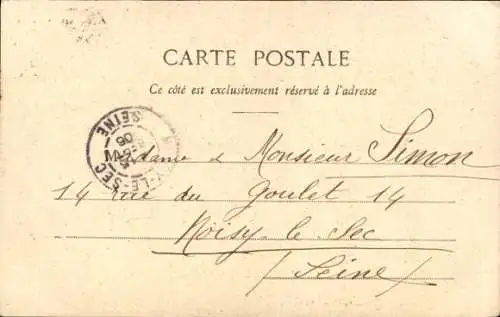 CARTE POSTALE
Ce côté est exclusivement réservé à l'adresse
Madame & Monsieur Simon
14 rue du Goulet 14
Noisy le Sec
(Seine)
LE-SEC
SEINE
06